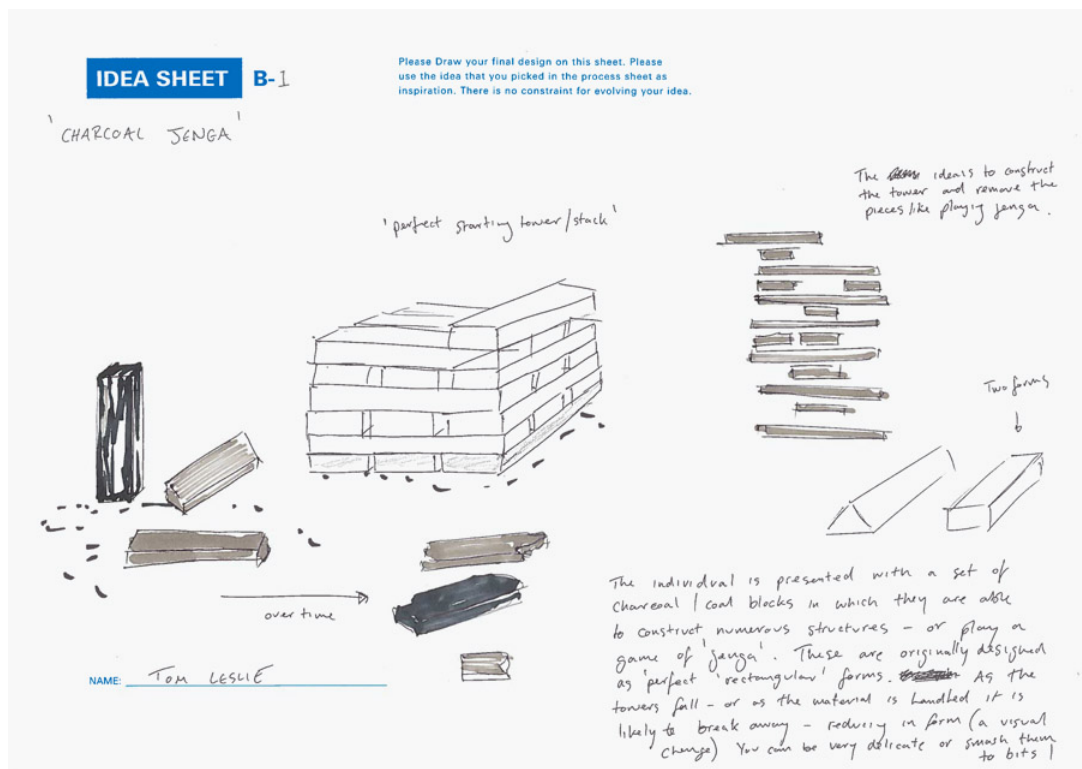 IDEA SHEET B-1
Please Draw your final design on this sheet. Please
use the idea that you picked in the process sheet as
inspiration. There is no constraint for evolving your idea.
'CHARCOAL JENGA'
The idea is to construct
the tower and remove the
pieces like playing jenga.
'perfect starting tower/stack'
Two forms
over time
The individual is presented with a set of
charcoal / coal blocks in which they are able
to construct numerous structures – or play a
game of 'jenga'. These are originally designed
as 'perfect' 'rectangular' forms. As the
towers fall – or as the material is handled it is
likely to break away – reducing in form (a visual
change) You can be very delicate or smash them
to bits!
NAME: TOM LESLIE